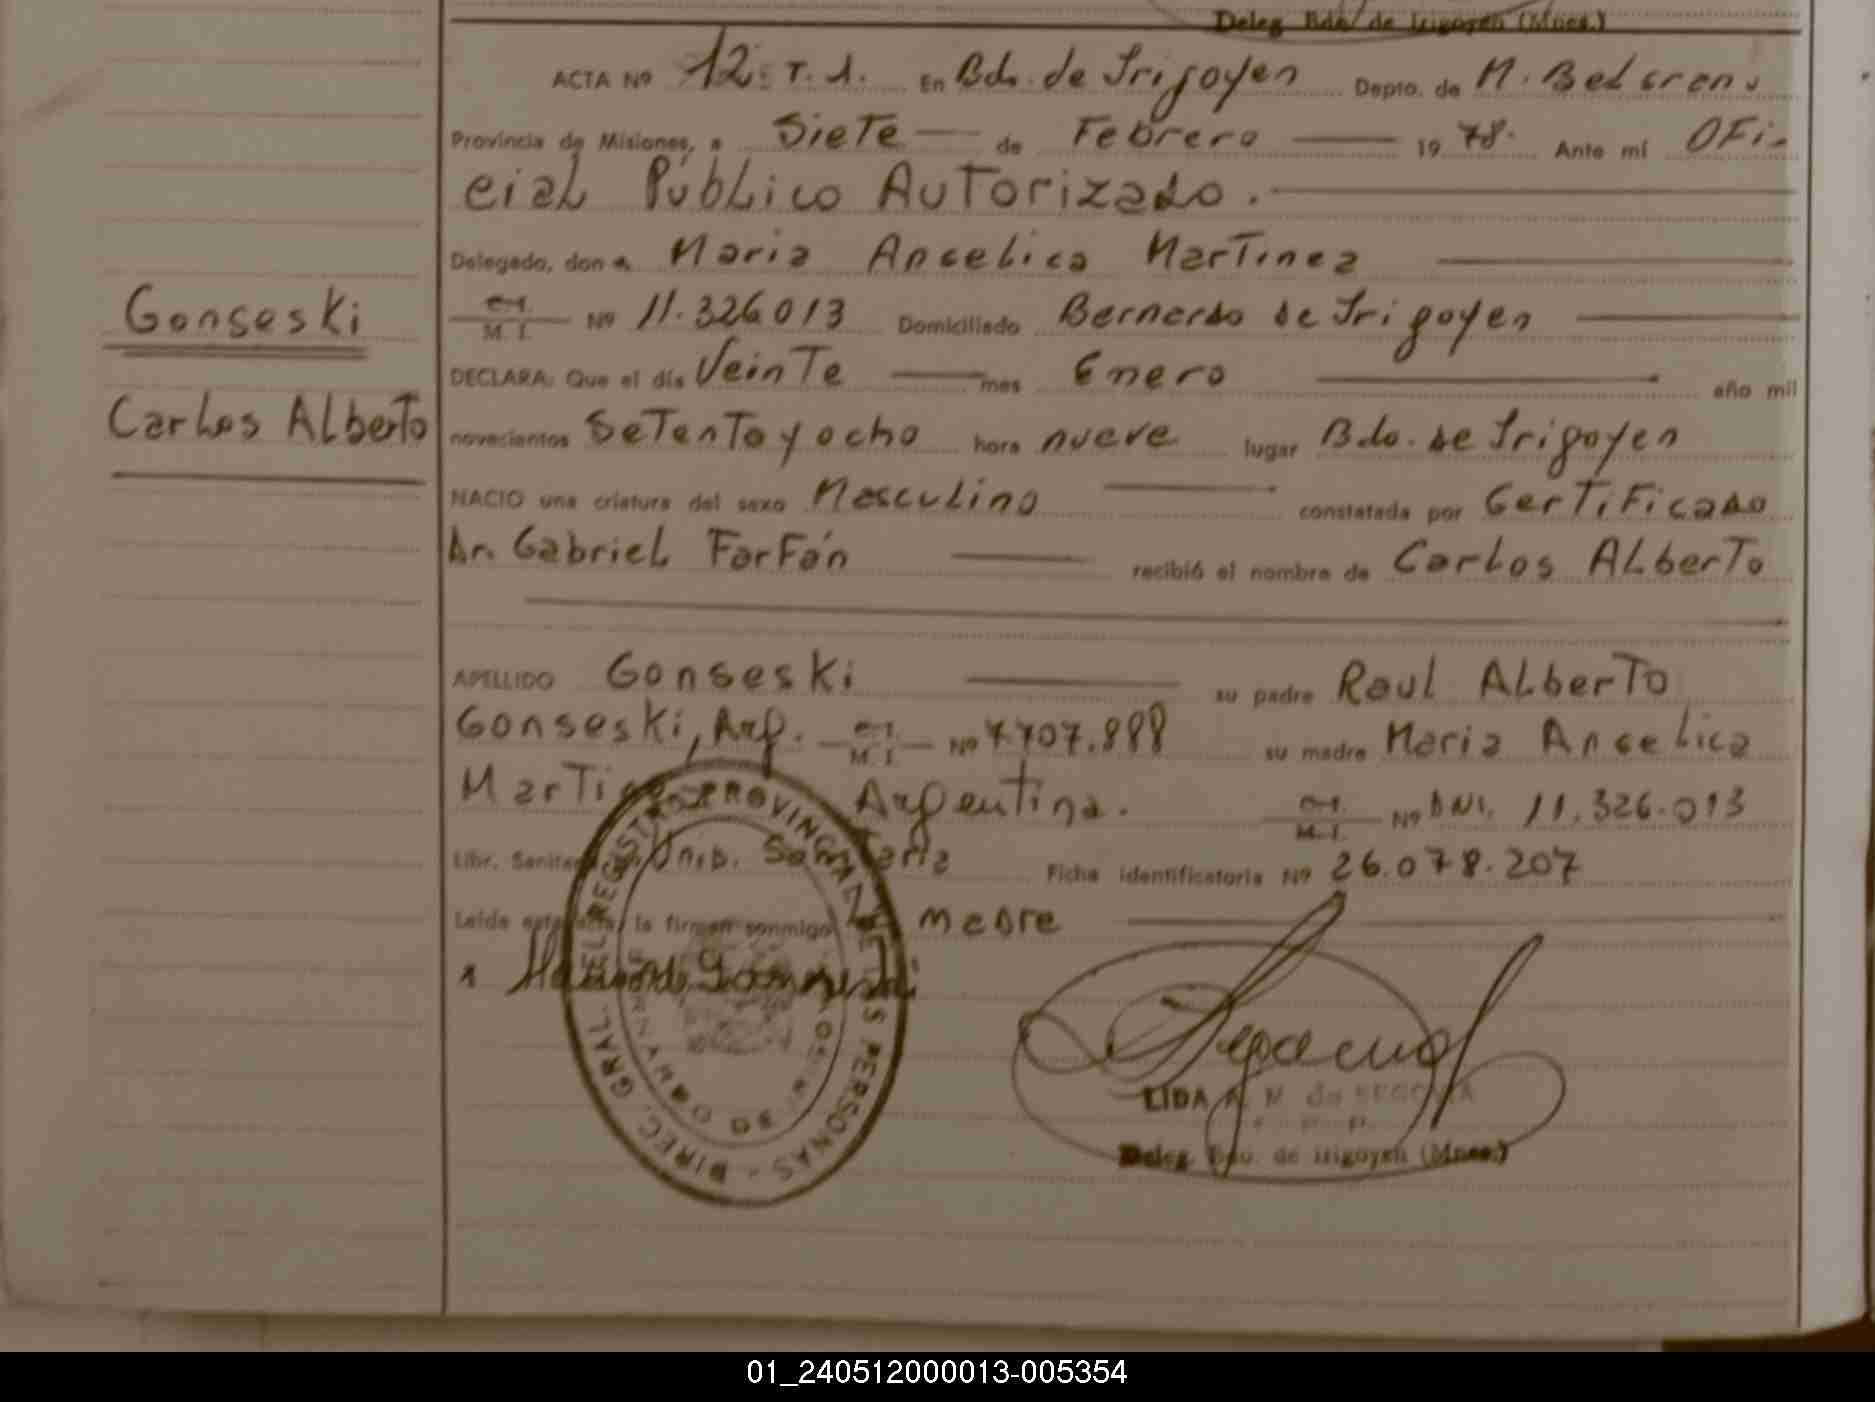 Deleg. Bdo. de Irigoyen (Mnes.)
ACTA Nº 12 T. 1. En Bdo. de Irigoyen Depto. de M. Belgrano
Provincia de Misiones, a Siete de Febrero 1978. Ante mí Ofi-
cial Público Autorizado.
Delegado, don a Maria Angelica Martinez
C. I. M. I. Nº 11.326013 Domiciliado Bernardo de Irigoyen
DECLARA: Que el día Veinte mes Enero año mil
novecientos Setenta y ocho hora nueve lugar Bdo. de Irigoyen
NACIO una criatura del sexo Masculino constatada por Certificado
Dr. Gabriel Farfán recibió el nombre de Carlos Alberto
Gonseski
Carlos Alberto
APELLIDO Gonseski su padre Raul Alberto
Gonseski, Arg. C. I. M. I. Nº 7.707.888 su madre Maria Angelica
Martinez Argentina. C. I. M. I. Nº DNI. 11.326.013
Libr. Sanitaria Unid. Sanitaria Ficha identificatoria Nº 26.078.207
Leída esta acta, la firman conmigo madre
DIREC. GRAL. DEL REGISTRO PROVINCIAL DE LAS PERSONAS
LIDA A. M. de SEGOVIA
Deleg. Bdo. de Irigoyen (Mnes.)
01_240512000013-005354